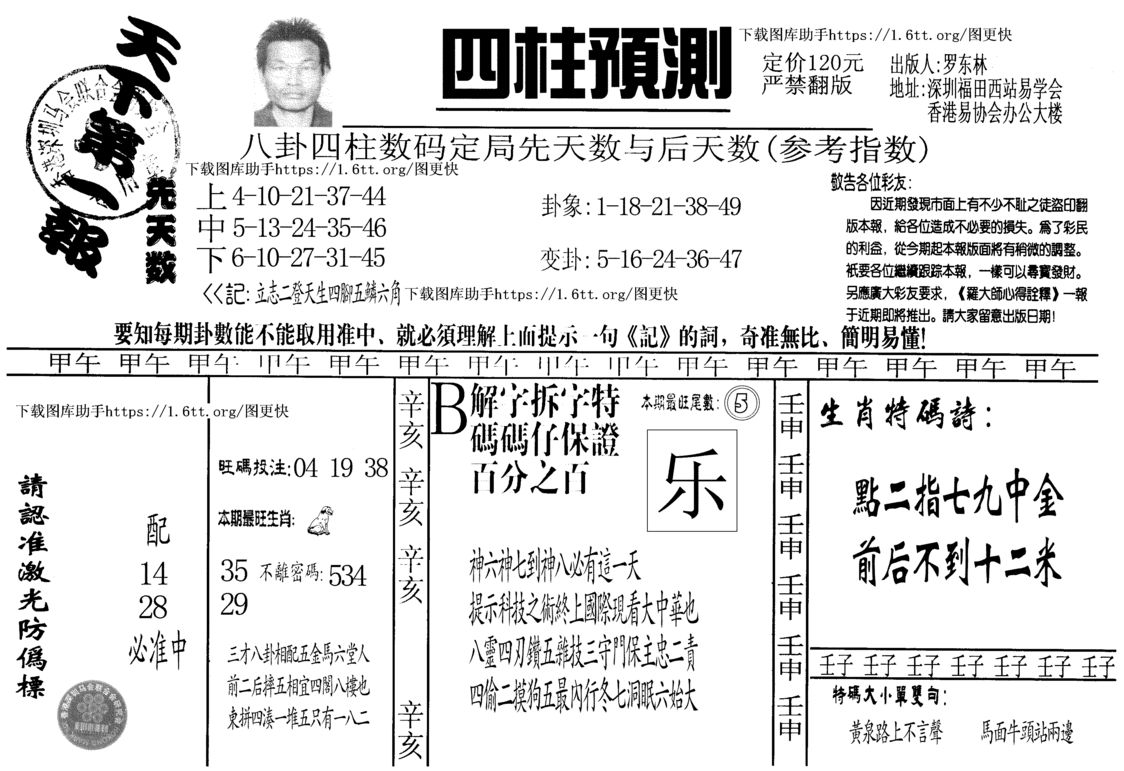 天下第一報
香港深圳马会联合会
四柱預測
下载图库助手https://1.6tt.org/图更快
定价120元
严禁翻版
出版人:罗东林
地址:深圳福田西站易学会
香港易协会办公大楼
八卦四柱数码定局先天数与后天数(参考指数)
下载图库助手https://1.6tt.org/图更快
先天数
上 4-10-21-37-44
中 5-13-24-35-46
下 6-10-27-31-45
卦象:1-18-21-38-49
变卦:5-16-24-36-47
<<記:立志二登天生四腳五鱗六角
下载图库助手https://1.6tt.org/图更快
敬告各位彩友:
因近期發現市面上有不少不耻之徒盗印翻
版本報,給各位造成不必要的損失。為了彩民
的利益,從今期起本報版面將有稍微的調整。
衹要各位繼續跟踪本報,一樣可以尋寶發財。
另應廣大彩友要求,《羅大師心得詮釋》一報
于近期即將推出。請大家留意出版日期!
要知每期卦數能不能取用准中、就必須理解上面提示一句《記》的詞,奇准無比、簡明易懂!
甲午 甲午 甲午 甲午 甲午 甲午 甲午 甲午 甲午 甲午 甲午 甲午 甲午 甲午 甲午
下载图库助手https://1.6tt.org/图更快
請認准激光防偽標
配
14
28
必准中
旺碼投注:04 19 38
本期最旺生肖:
35 不離密碼:534
29
三才八卦相配五金馬六堂人
前二后摔五相宜四閣八樓也
東拼四湊一堆五只有一八二
辛亥
辛亥
辛亥
辛亥
B
解字拆字特
碼碼仔保證
百分之百
本期最旺尾數:5
乐
神六神七到神八必有這一天
提示科技之術終上國際現看大中華也
八靈四刃鑽五雜技三守門保主忠二責
四偷二摸狗五最內行冬七洞眠六始大
壬申
壬申
壬申
壬申
壬申
壬申
生肖特碼詩:
點二指七九中金
前后不到十二米
壬子 壬子 壬子 壬子 壬子 壬子 壬子
特碼大小單雙句:
黃泉路上不言聲 馬面牛頭站兩邊